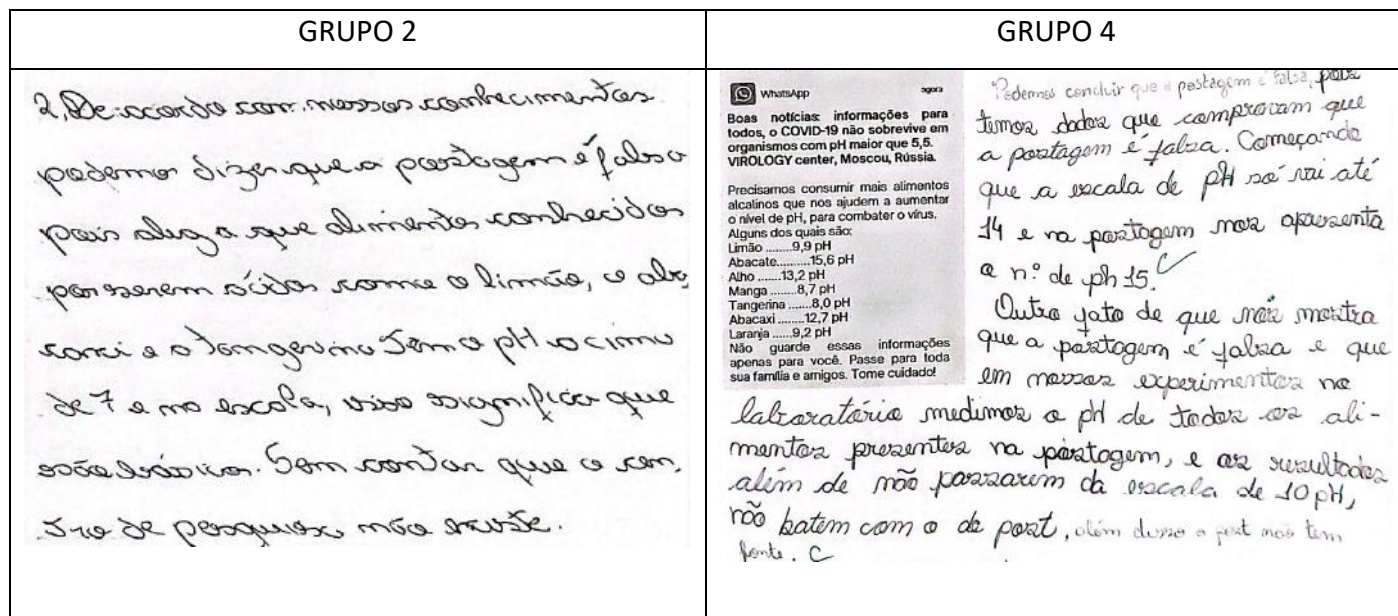 GRUPO 2
2. De acordo com nossos conhecimentos
podemos dizer que a postagem é falsa
pois alega que alimentos conhecidos
por serem ácidos como o limão, o aba
caxi e a tangerina tem o pH acima
de 7 e na escala, isso significa que
são básicos. Sem contar que o cen
tro de pesquisa não existe.
GRUPO 4
WhatsApp agora
Boas notícias: informações para
todos, o COVID-19 não sobrevive em
organismos com pH maior que 5,5.
VIROLOGY center, Moscou, Rússia.
Precisamos consumir mais alimentos
alcalinos que nos ajudem a aumentar
o nível de pH, para combater o vírus.
Alguns dos quais são:
Limão ........9,9 pH
Abacate..........15,6 pH
Alho .......13,2 pH
Manga .......8,7 pH
Tangerina .......8,0 pH
Abacaxi ........12,7 pH
Laranja ......9,2 pH
Não guarde essas informações
apenas para você. Passe para toda
sua família e amigos. Tome cuidado!
Podemos concluir que a postagem é falsa, pois
temos dados que comprovam que
a postagem é falsa. Começando
que a escala de pH só vai até
14 e na postagem nos apresenta
o n° de ph 15.
Outro fato de que nos mostra
que a postagem é falsa é que
em nossos experimentos no
laboratório medimos o pH de todos os ali-
mentos presentes na postagem, e os resultados
além de não passarem da escala de 10 pH,
não batem com o do post, além disso o post não tem
fonte.